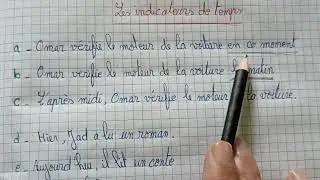 Les indicateurs de temps
a - Omar vérifie le moteur de la voiture en ce moment
b - Omar vérifie le moteur de la voiture
c - L'après midi, Omar vérifie le moteur la voiture.
d - Hier, Jad a lu un roman.
e - Aujourd'hui, il lit un conte